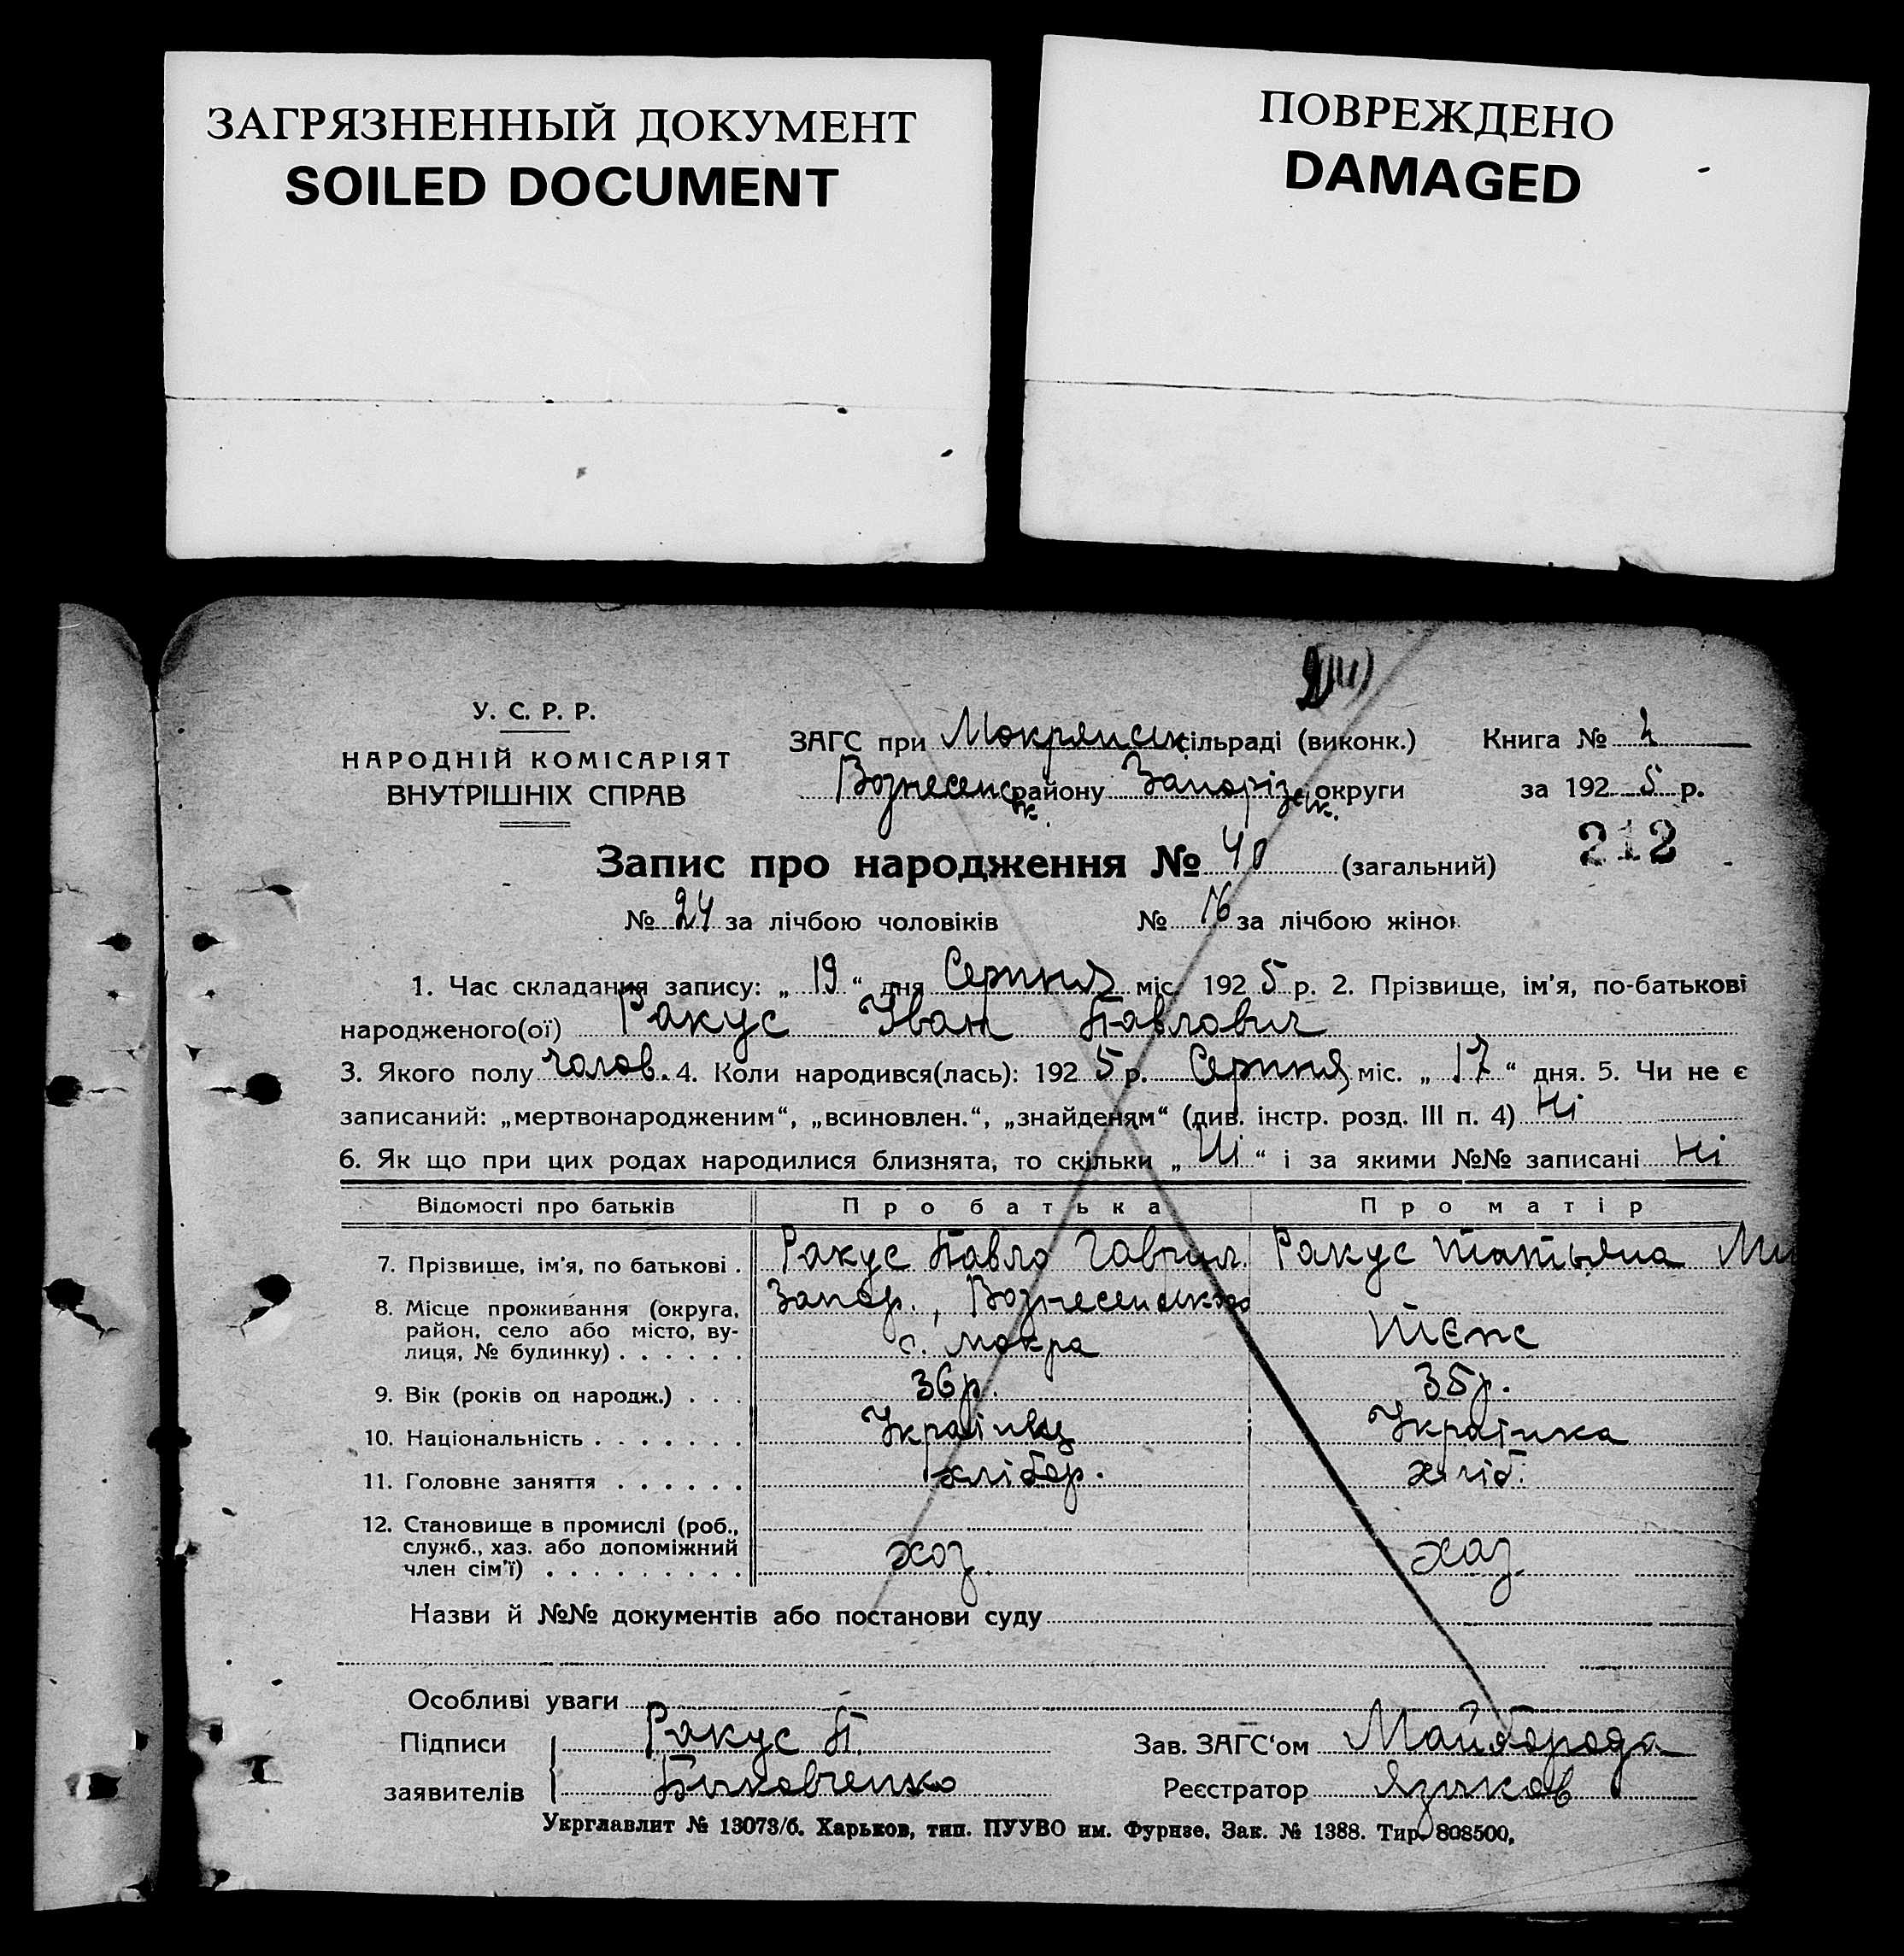 ЗАГРЯЗНЕННЫЙ ДОКУМЕНТ
SOILED DOCUMENT
ПОВРЕЖДЕНО
DAMAGED
У. С. Р. Р.
НАРОДНІЙ КОМІСАРІЯТ
ВНУТРІШНІХ СПРАВ
ЗАГС при Мокрянськ сільраді (виконк.) Книга № 2
Вознесенськ. району Запорізськ. округи за 1925 р.
212
Запис про народження № 40 (загальний)
№ 24 за лічбою чоловіків № 16 за лічбою жінок
1. Час складання запису: „19“ дня Серпня міс. 1925 р. 2. Прізвище, ім'я, по-батькові
народженого(ої) Ракус Іван Павлович
3. Якого полу чолов. 4. Коли народився(лась): 1925 р. Серпня міс. „17“ дня. 5. Чи не є
записаний: „мертвонародженим“, „всиновлен.“, „знайденям“ (див. інстр. розд. III п. 4) Ні
6. Як що при цих родах народилися близнята, то скільки „Ні“ і за якими №№ записані Ні
Відомості про батьків Про батька Про матір
7. Прізвище, ім'я, по батькові . Ракус Павло Гаврил. Ракус Татьяна Ми
8. Місце проживання (округа, район, село або місто, вулиця, № будинку) . . . . . . Запор., Вознесенського
с. Мокра Тєпс
9. Вік (років од народж.) . . . 36 р. 35 р.
10. Національність . . . . . . . Українець Українка
11. Головне заняття . . . . . . хлібор. хліб.
12. Становище в промислі (роб.,
служб., хаз. або допоміжний
член сім'ї) . . . . . . . . . хоз. хаз.
Назви й №№ документів або постанови суду
Особливі уваги
Підписи Ракус П. Зав. ЗАГС'ом Майборода
заявителів Биковченко Реєстратор Язиков
Укрглавлит № 13073/б. Харьков, тип. ПУУВО им. Фурнзе. Зак. № 1388. Тир. 808500.